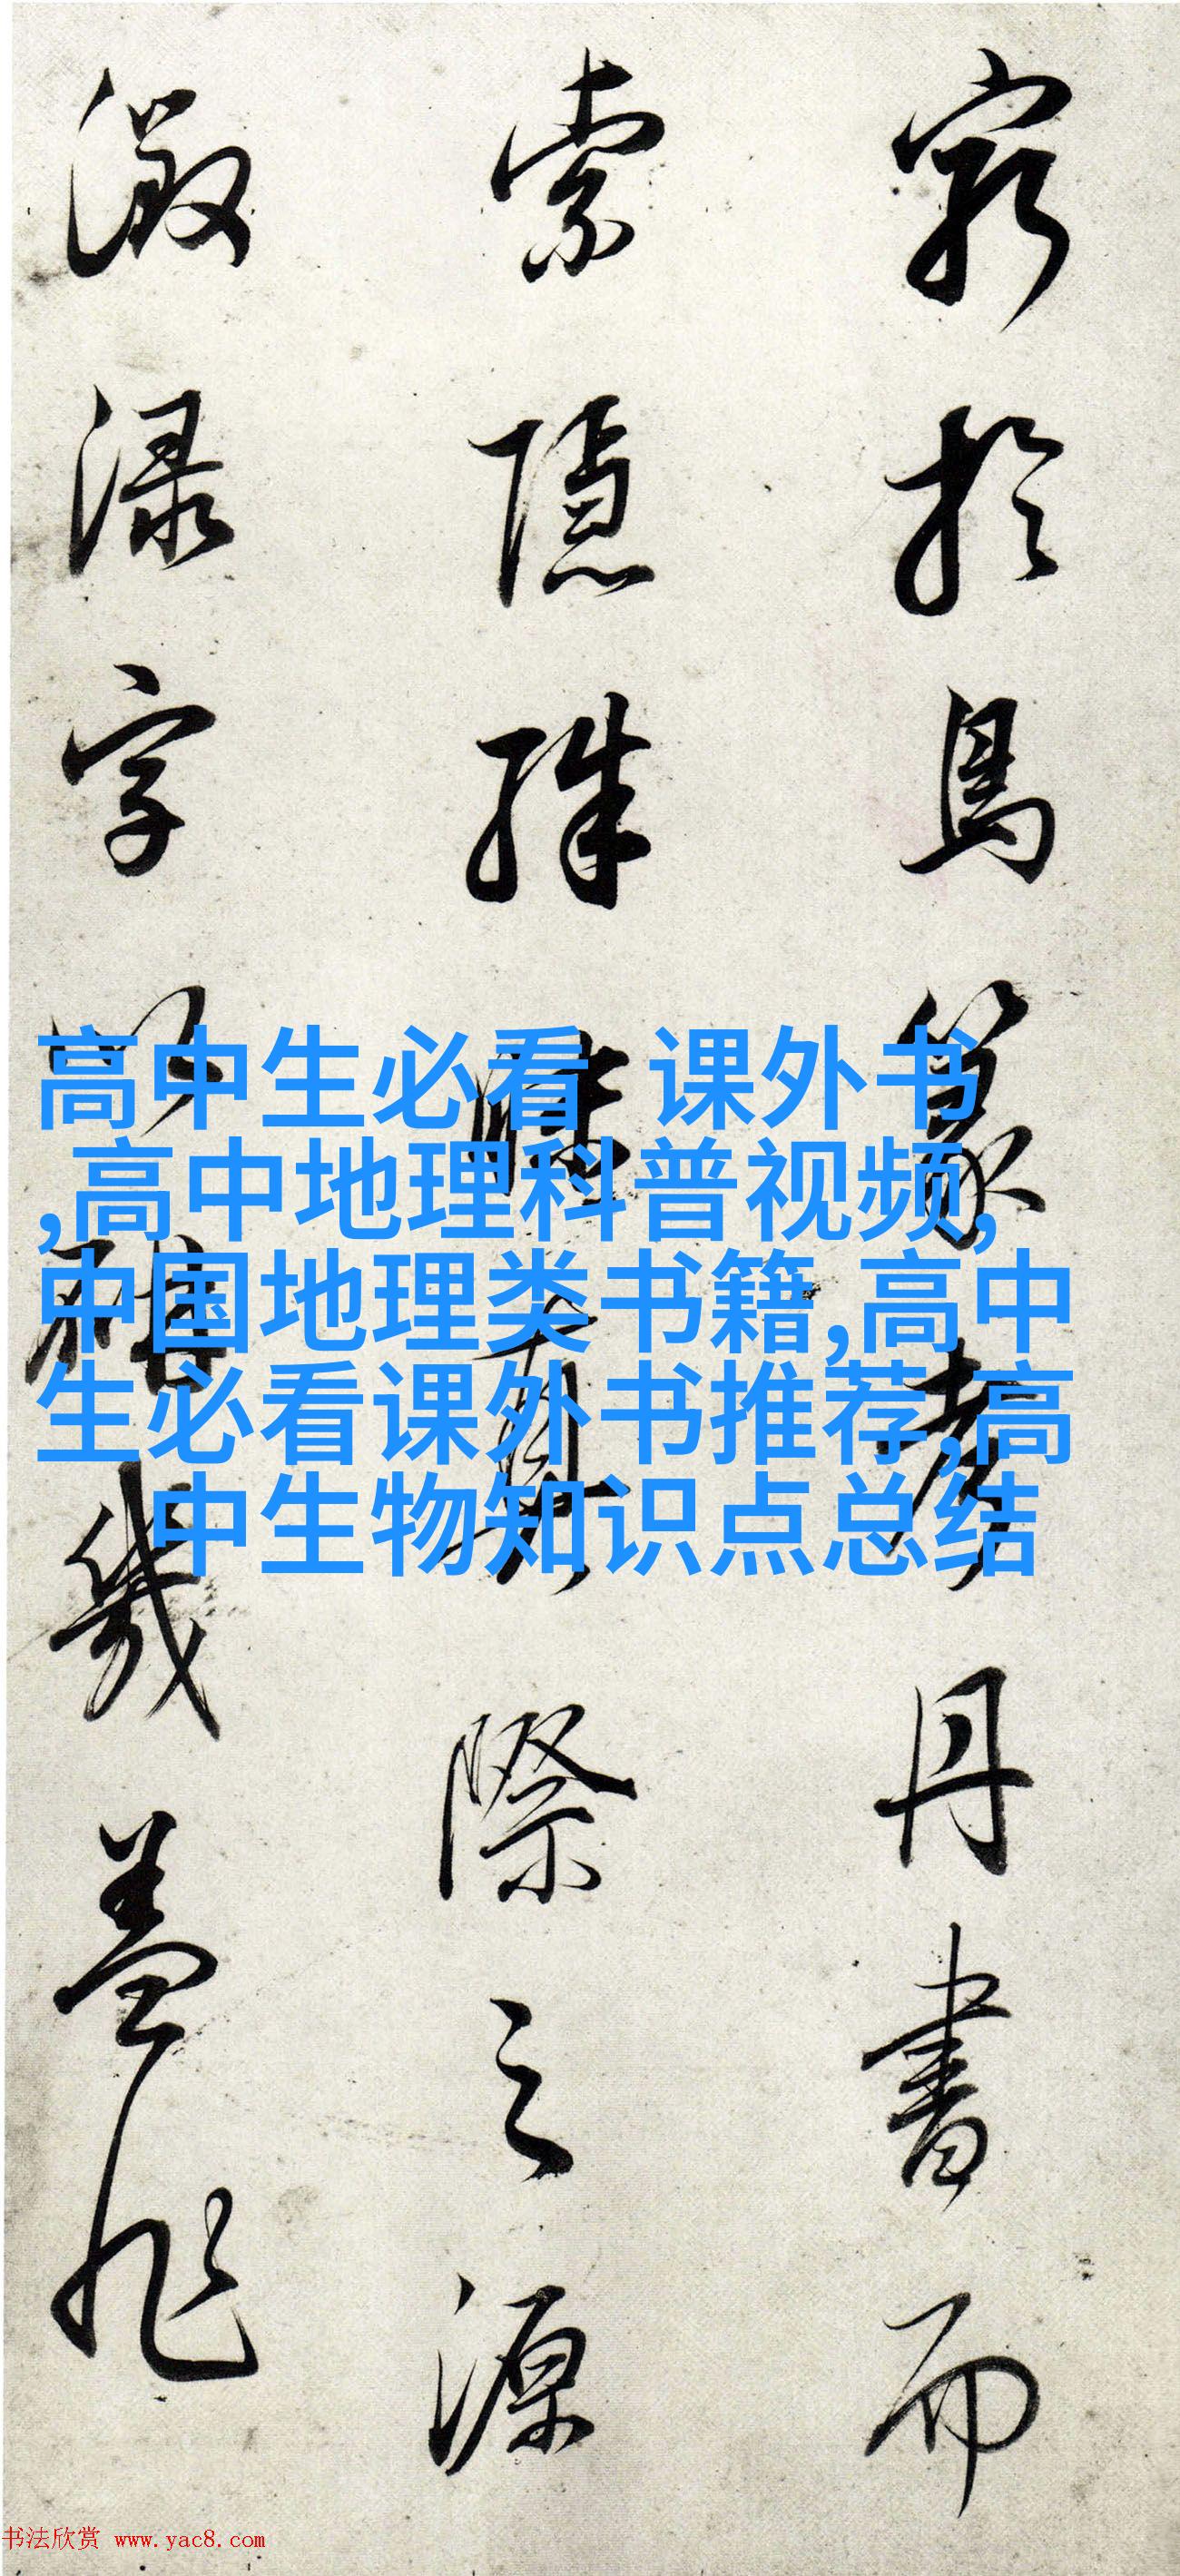 窮於鳥篆考丹書而
索隱殊昧真際之源
澂渌字幾盖非
高中生必看 课外书
,高中地理科普视频,
中国地理类书籍,高中
生必看课外书推荐,高
中生物知识点总结
书法欣赏 www.yac8.com